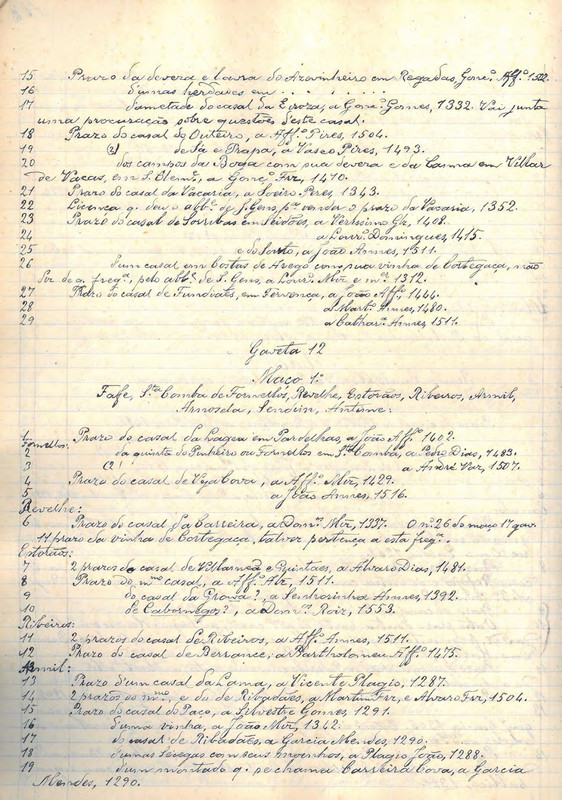 15 Prazo da devesa e lavra do Azevinheiro em Regadas, Gonç.º Aff.º 1522.
16 dumas herdades em . . . . . . .
17 dametade do casal da Eyroza, a Gonç.º Gomes, 1332. Vai junta
uma procuração sobre questões deste casal.
18 Prazo do casal do Outeiro, a Aff.º Pires, 1504.
19 (2) de Sá e Prapa, a Vasco Pires, 1493.
20 dos campos da Boga com sua devesa e da Cama em Villar
de Vacas, em S. Clem.te, a Gonç.º Frz, 1410.
21 Prazo do casal da Vacaria, a Soeiro Pires, 1343.
22 Licença q. deu o abb.e de S. Gens, p.a vender o prazo da Vacaria, 1352.
23 Prazo do casal de Sorribas em Seidões, a Verissimo Glz, 1408.
24 a Lour.º Domingues, 1415.
25 e do Souto, a João Annes, 1511.
26 dum casal em Cortas de Arego com sua vinha de Cortegaça, não
diz de q. freg.a, pelo abb.e de S. Gens, a Lour.º Miz e m.er 1312.
27 Prazo do casal de Fundiães, em Fervença, a João Aff.º 1444.
28 a Mart.º Annes, 1480.
29 a Cathar.a Annes, 1511.
Gaveta 12
Maço 1.º
Fafe, S.ta Comba de Fornellos, Revelhe, Estorãos, Ribeiros, Armil,
Arnosela, Sendein, Antime:
1 Prazo do casal da Lagea em Pardelhas, a João Aff.º 1402.
Fornellos:
2 da quinta do Pinheiro ou Fornellos em S.ta Comba, a Pedro Dias, 1483.
3 (2) a André Vaz, 1507.
4 Prazo do casal de Veja Cova, a Aff.º Miz, 1429.
5 a João Annes, 1516.
Revelhe:
6 Prazo do casal da Carreira, a Dom.os Miz, 1337. O n.º 26 do maço 17 gav.
11 prazo da vinha de Cortegaça, talvez pertença a esta freg.a.
Estorãos:
7 2 prazos do casal de Villarmeã e Quintaes, a Alvaro Dias, 1481.
8 Prazo do m.mo casal, a Aff.º Alz, 1511.
9 do casal da Growa?, a Senhorinha Annes, 1392.
10 de Cabornegos?, a Dom.os Roiz, 1553.
Ribeiros:
11 2 prazos do casal de Ribeiros, a Aff.º Annes, 1511.
12 Prazo do casal de Berrance, a Bartholomeu Aff.º 1475.
Armil:
13 Prazo dum casal da Lama, a Vicente Plagio, 1287.
14 2 prazos do m.mo, e do de Ribadães, a Martim Frz, e Alvaro Frz, 1504.
15 Prazo do casal do Paço, a Silvestre Gomes 1291.
16 duma vinha, a João Miz, 1342.
17 do casal de Ribadães, a Garcia Mendes, 1290.
18 dumas Lesegas com seus moinhos, a Plagio João, 1288.
19 dum montado q. se chama Carreira Cova, a Garcia
Mendes, 1290.